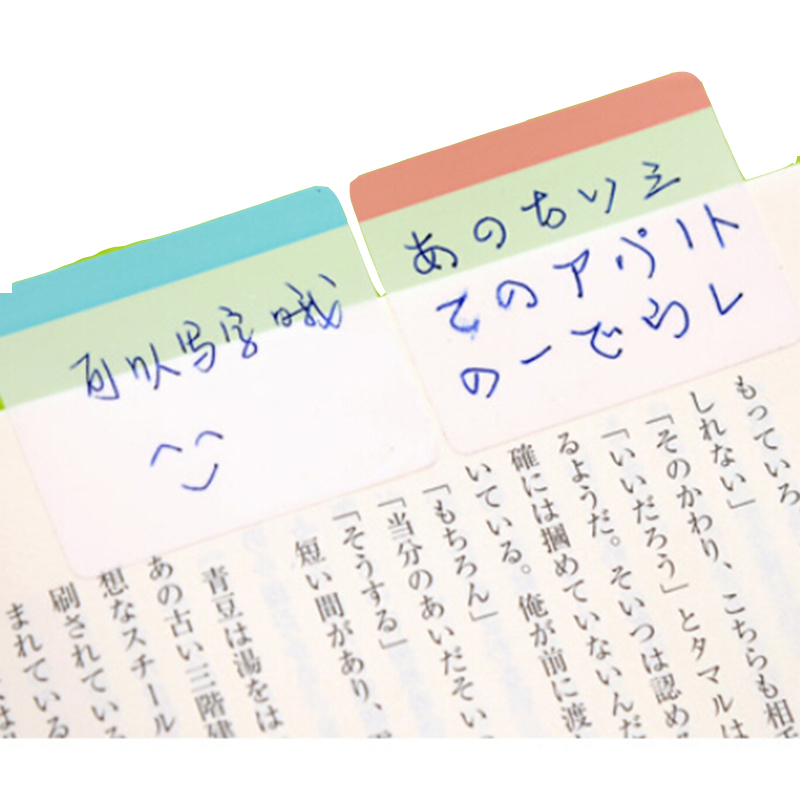 可以写字哦
あの古い三
てのアパート
もっていろ
しれない」
「そのかわり、こちらも相
「いいだろう」とタマルは
るようだ。そいつは認め
確には掴めていないんだ
いている。俺が前に渡
「もちろん」
「当分のあいだそい
「そうする」
短い間があり、
青豆は湯をは
あの古い三階建
想なスチール
刷されている
まれている